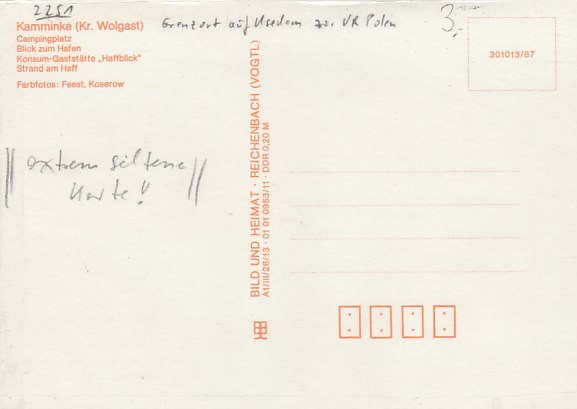 2251
Kamminke (Kr. Wolgast)
Grenzort auf Usedom zur VR Polen
3,-
Campingplatz
Blick zum Hafen
Konsum-Gaststätte „Haffblick“
Strand am Haff
Farbfotos: Feest, Koserow
301013/87
|| extrem seltene
Karte! ||
BILD UND HEIMAT · REICHENBACH (VOGTL)
A1/III/26/13 · 01 01 0953/11 · DDR 0,20 M